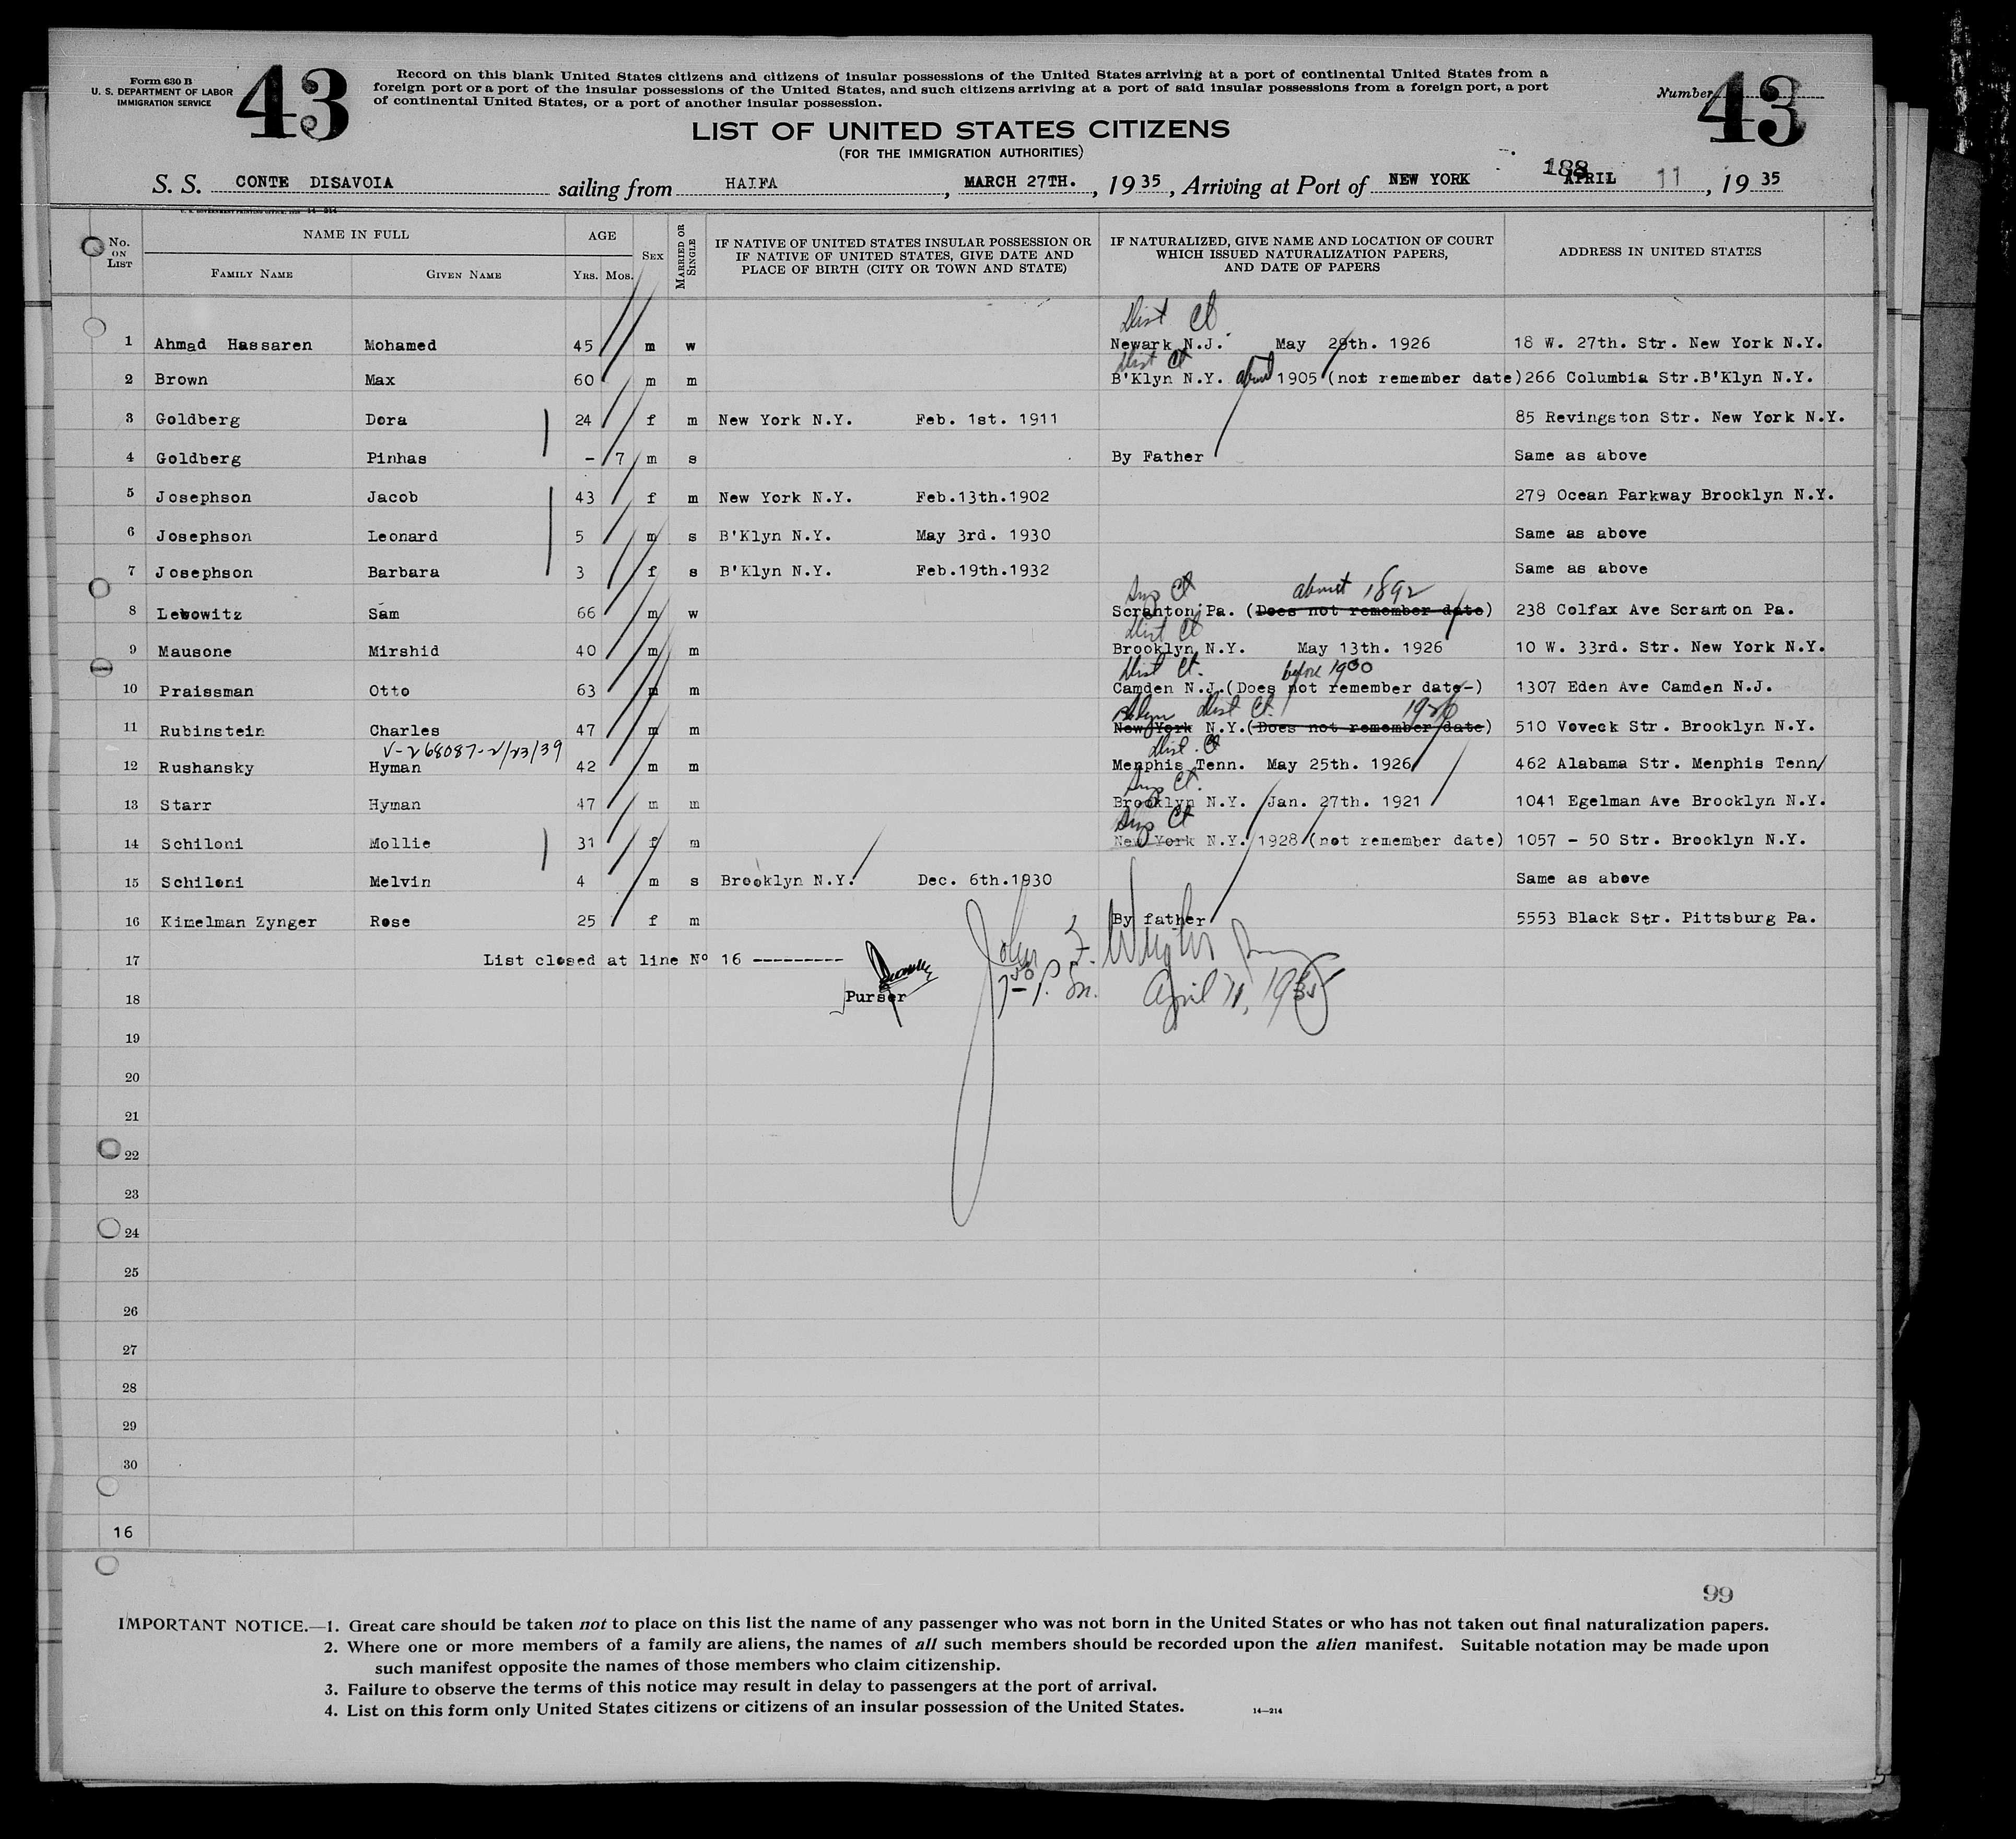 Form 630 B
U. S. DEPARTMENT OF LABOR
IMMIGRATION SERVICE
43
Record on this blank United States citizens and citizens of insular possessions of the United States arriving at a port of continental United States from a
foreign port or a port of the insular possessions of the United States, and such citizens arriving at a port of said insular possessions from a foreign port, a port
of continental United States, or a port of another insular possession.
Number 43
LIST OF UNITED STATES CITIZENS
(FOR THE IMMIGRATION AUTHORITIES)
188
S. S. CONTE DISAVOIA sailing from HAIFA, MARCH 27TH., 1935, Arriving at Port of NEW YORK APRIL 11, 1935
No. ON LIST
NAME IN FULL
FAMILY NAME
GIVEN NAME
AGE
YRS. MOS.
SEX
MARRIED OR SINGLE
IF NATIVE OF UNITED STATES INSULAR POSSESSION OR
IF NATIVE OF UNITED STATES, GIVE DATE AND
PLACE OF BIRTH (CITY OR TOWN AND STATE)
IF NATURALIZED, GIVE NAME AND LOCATION OF COURT
WHICH ISSUED NATURALIZATION PAPERS,
AND DATE OF PAPERS
ADDRESS IN UNITED STATES
Dist Ct
1 Ahmad Hassaren Mohamed 45 m w Newark N.J. May 29th. 1926 18 W. 27th. Str. New York N.Y.
Dist Ct
2 Brown Max 60 m m B'Klyn N.Y. about 1905 (not remember date) 266 Columbia Str.B'Klyn N.Y.
3 Goldberg Dora 24 f m New York N.Y. Feb. 1st. 1911 85 Revingston Str. New York N.Y.
4 Goldberg Pinhas - 7 m s By Father Same as above
5 Josephson Jacob 43 f m New York N.Y. Feb.13th.1902 279 Ocean Parkway Brooklyn N.Y.
6 Josephson Leonard 5 m s B'Klyn N.Y. May 3rd. 1930 Same as above
7 Josephson Barbara 3 f s B'Klyn N.Y. Feb.19th.1932 Same as above
Sup Ct about 1892
8 Lebowitz Sam 66 m w Scranton Pa. (Does not remember date) 238 Colfax Ave Scranton Pa.
Dist Ct
9 Mausone Mirshid 40 m m Brooklyn N.Y. May 13th. 1926 10 W. 33rd. Str. New York N.Y.
Dist Ct. before 1900
10 Praissman Otto 63 m m Camden N.J.(Does not remember date-) 1307 Eden Ave Camden N.J.
Bklyn Dist Ct. 1926
11 Rubinstein Charles 47 m m New York N.Y.(Does not remember date) 510 Voveck Str. Brooklyn N.Y.
V-268087-2/23/39 Dist. Ct
12 Rushansky Hyman 42 m m Menphis Tenn. May 25th. 1926 462 Alabama Str. Menphis Tenn/
Sup Ct.
13 Starr Hyman 47 m m Brooklyn N.Y. Jan. 27th. 1921 1041 Egelman Ave Brooklyn N.Y.
Sup Ct
14 Schiloni Mollie 31 f m New York N.Y. 1928 (not remember date) 1057 - 50 Str. Brooklyn N.Y.
15 Schiloni Melvin 4 m s Brooklyn N.Y. Dec. 6th.1930 Same as above
16 Kimelman Zynger Rose 25 f m By father 5553 Black Str. Pittsburg Pa.
17 List closed at line Nº 16 ---------
John F.
18 Purser April 11, 1935
19
20
21
22
23
24
25
26
27
28
29
30
16
99
IMPORTANT NOTICE.—1. Great care should be taken not to place on this list the name of any passenger who was not born in the United States or who has not taken out final naturalization papers.
2. Where one or more members of a family are aliens, the names of all such members should be recorded upon the alien manifest. Suitable notation may be made upon
such manifest opposite the names of those members who claim citizenship.
3. Failure to observe the terms of this notice may result in delay to passengers at the port of arrival.
4. List on this form only United States citizens or citizens of an insular possession of the United States.
14—214